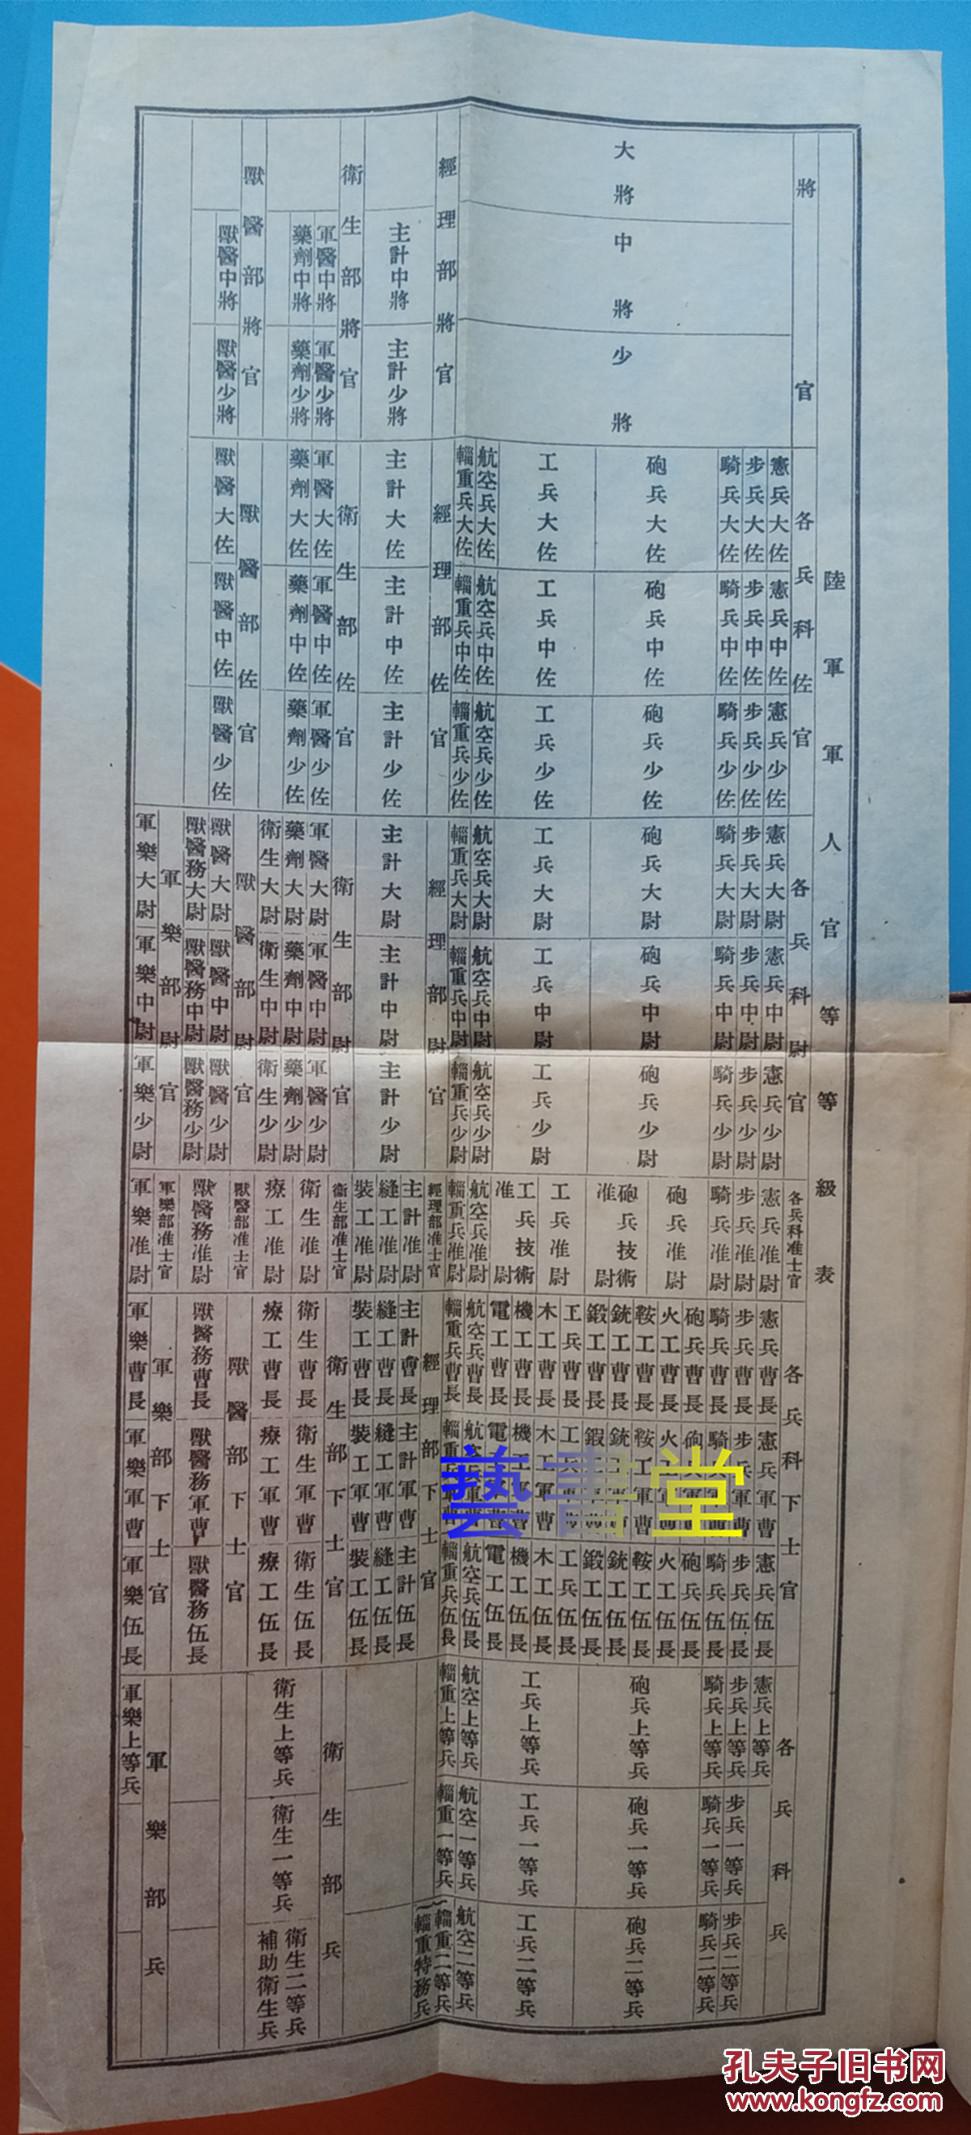 陸軍軍人官等等級表
將官
大將
中將
少將
各兵科佐官
憲兵大佐
憲兵中佐
憲兵少佐
步兵大佐
步兵中佐
步兵少佐
騎兵大佐
騎兵中佐
騎兵少佐
砲兵大佐
砲兵中佐
砲兵少佐
工兵大佐
工兵中佐
工兵少佐
航空兵大佐
航空兵中佐
航空兵少佐
輜重兵大佐
輜重兵中佐
輜重兵少佐
各兵科尉官
憲兵大尉
憲兵中尉
憲兵少尉
步兵大尉
步兵中尉
步兵少尉
騎兵大尉
騎兵中尉
騎兵少尉
砲兵大尉
砲兵中尉
砲兵少尉
工兵大尉
工兵中尉
工兵少尉
航空兵大尉
航空兵中尉
航空兵少尉
輜重兵大尉
輜重兵中尉
輜重兵少尉
各兵科准士官
憲兵准尉
步兵准尉
騎兵准尉
砲兵准尉
砲兵技術准尉
工兵准尉
工兵技術准尉
航空兵准尉
輜重兵准尉
各兵科下士官
憲兵曹長
憲兵軍曹
憲兵伍長
步兵曹長
步兵軍曹
步兵伍長
騎兵曹長
騎兵伍長
砲兵曹長
砲兵伍長
火工曹長
火工伍長
鞍工曹長
鞍工軍曹
鞍工伍長
銃工曹長
銃工伍長
鍛工曹長
鍛工伍長
工兵曹長
工兵伍長
木工曹長
木工軍曹
木工伍長
機工曹長
機工軍曹
機工伍長
電工曹長
電工伍長
航空兵曹長
航空兵伍長
輜重兵曹長
輜重兵伍長
各兵科兵
憲兵上等兵
步兵上等兵
步兵一等兵
步兵二等兵
騎兵上等兵
騎兵一等兵
騎兵二等兵
砲兵上等兵
砲兵一等兵
砲兵二等兵
工兵上等兵
工兵一等兵
工兵二等兵
航空上等兵
航空一等兵
航空二等兵
輜重上等兵
輜重一等兵
輜重二等兵
輜重特務兵
經理部將官
主計中將
主計少將
經理部佐官
主計大佐
主計中佐
主計少佐
經理部尉官
主計大尉
主計中尉
主計少尉
經理部准士官
主計准尉
縫工准尉
裝工准尉
經理部下士官
主計曹長
主計軍曹
主計伍長
縫工曹長
縫工軍曹
縫工伍長
裝工曹長
裝工軍曹
裝工伍長
衛生部將官
軍醫中將
軍醫少將
藥劑中將
藥劑少將
衛生部佐官
軍醫大佐
軍醫中佐
軍醫少佐
藥劑大佐
藥劑中佐
藥劑少佐
衛生部尉官
軍醫大尉
軍醫中尉
軍醫少尉
藥劑大尉
藥劑中尉
藥劑少尉
衛生大尉
衛生中尉
衛生少尉
衛生部准士官
衛生准尉
療工准尉
衛生部下士官
衛生曹長
衛生軍曹
衛生伍長
療工曹長
療工軍曹
療工伍長
衛生部兵
衛生上等兵
衛生一等兵
衛生二等兵
補助衛生兵
獸醫部將官
獸醫中將
獸醫少將
獸醫部佐官
獸醫大佐
獸醫中佐
獸醫少佐
獸醫部尉官
獸醫大尉
獸醫中尉
獸醫少尉
獸醫務大尉
獸醫務中尉
獸醫務少尉
獸醫部准士官
獸醫務准尉
獸醫部下士官
獸醫務曹長
獸醫務軍曹
獸醫務伍長
軍樂部尉官
軍樂大尉
軍樂中尉
軍樂少尉
軍樂部准士官
軍樂准尉
軍樂部下士官
軍樂曹長
軍樂軍曹
軍樂伍長
軍樂部兵
軍樂上等兵
藝書堂
孔夫子旧书网
www.kongfz.com